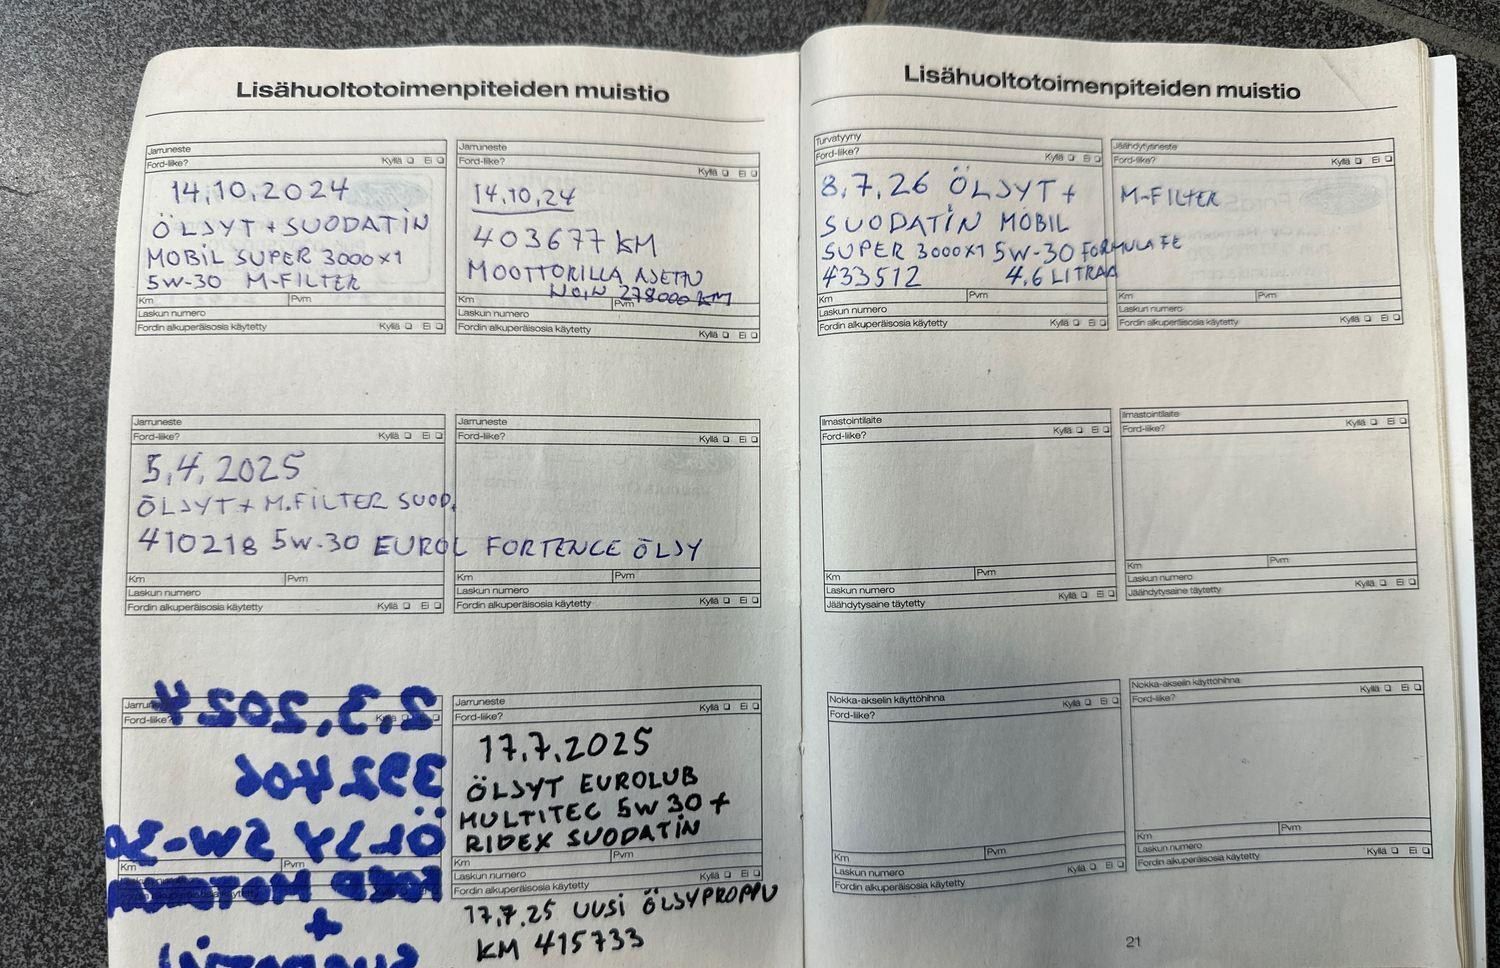 Lisähuoltotoimenpiteiden muistio
Jarruneste
Ford-liike? Kyllä ❏ Ei ❏
14,10,2024
ÖLJYT + SUODATIN
MOBIL SUPER 3000x1
5W-30 M-FILTER
Km Pvm
Laskun numero
Fordin alkuperäisosia käytetty Kyllä ❏ Ei ❏
Jarruneste
Ford-liike? Kyllä ❏ Ei ❏
14,10,24
403677 KM
MOOTTORILLA AJETTU
NOIN 278000 KM
Km Pvm
Laskun numero
Fordin alkuperäisosia käytetty Kyllä ❏ Ei ❏
Jarruneste
Ford-liike? Kyllä ❏ Ei ❏
5,4,2025
ÖLJYT + M.FILTER SUOD.
410218 5W-30 EUROL FORTENCE ÖLJY
Km Pvm
Laskun numero
Fordin alkuperäisosia käytetty Kyllä ❏ Ei ❏
Jarruneste
Ford-liike? Kyllä ❏ Ei ❏
Km Pvm
Laskun numero
Fordin alkuperäisosia käytetty Kyllä ❏ Ei ❏
Ford-liike?
2,3,2024
392406
ÖLJY 5W-30
Km Pvm
FORD MOTORCRAFT
+
SUODATIN
Jarruneste
Ford-liike? Kyllä ❏ Ei ❏
17.7.2025
ÖLJYT EUROLUB
MULTITEC 5W30 +
RIDEX SUODATIN
Km Pvm
Laskun numero
Fordin alkuperäisosia käytetty Kyllä ❏ Ei ❏
17.7.25 UUSI ÖLJYPROPPU
KM 415733
Lisähuoltotoimenpiteiden muistio
Turvatyyny
Ford-liike? Kyllä ❏ Ei ❏
8,7,26 ÖLJYT +
SUODATIN MOBIL
SUPER 3000x1 5W-30 FORMULA FE
433512 4,6 LITRAA
Km Pvm
Laskun numero
Fordin alkuperäisosia käytetty Kyllä ❏ Ei ❏
Jäähdytysneste
Ford-liike? Kyllä ❏ Ei ❏
M-FILTER
Km Pvm
Laskun numero
Fordin alkuperäisosia käytetty Kyllä ❏ Ei ❏
Ilmastointilaite
Ford-liike? Kyllä ❏ Ei ❏
Km Pvm
Laskun numero
Jäähdytysaine täytetty Kyllä ❏ Ei ❏
Ilmastointilaite
Ford-liike? Kyllä ❏ Ei ❏
Km Pvm
Laskun numero
Jäähdytysaine täytetty Kyllä ❏ Ei ❏
Nokka-akselin käyttöhihna
Ford-liike? Kyllä ❏ Ei ❏
Km Pvm
Laskun numero
Fordin alkuperäisosia käytetty Kyllä ❏ Ei ❏
Nokka-akselin käyttöhihna
Ford-liike? Kyllä ❏ Ei ❏
Km Pvm
Laskun numero
Fordin alkuperäisosia käytetty Kyllä ❏ Ei ❏
21